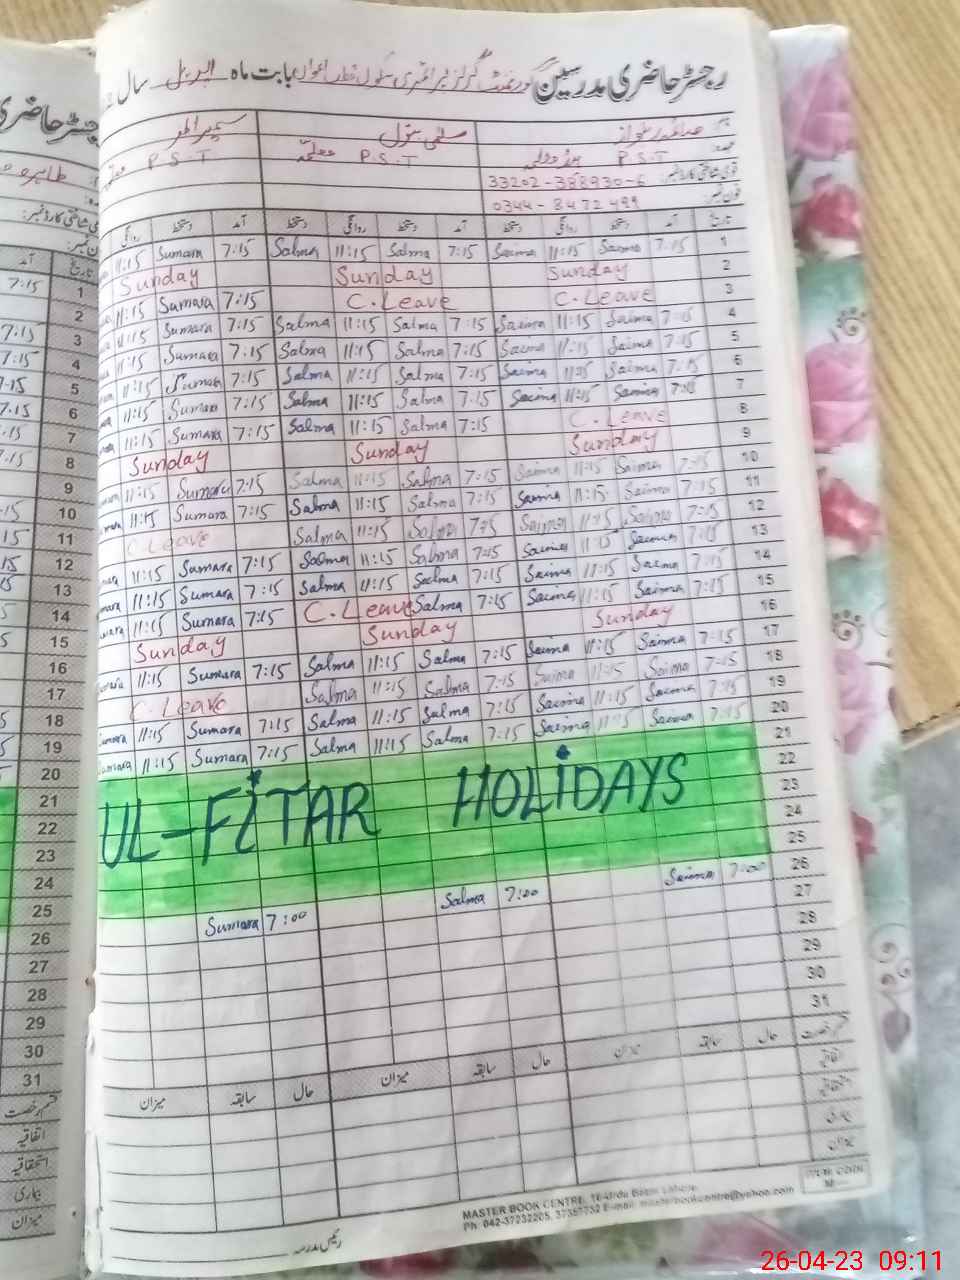 رجسٹر حاضری مدرسین گورنمنٹ گرلز پرائمری سکول بابت ماہ اپریل سال
سلمی بتول
معلمہ P.S.T P.S.T P.S.T
قومی شناختی کارڈ نمبر: 33202-388930-6
فون نمبر: 0344-8472499
روانگی دستخط آمد دستخط روانگی دستخط آمد دستخط روانگی دستخط آمد تاریخ
11:15 Sumara 7:15 Salma 11:15 Salma 7:15 Saima 11:15 Saima 7:15 1
Sunday Sunday Sunday 2
11:15 Sumara 7:15 C.Leave C.Leave 3
11:15 Sumara 7:15 Salma 11:15 Salma 7:15 Saima 11:15 Saima 7:15 4
11:15 Sumara 7:15 Salma 11:15 Salma 7:15 Saima 11:15 Saima 7:15 5
11:15 Sumara 7:15 Salma 11:15 Salma 7:15 Saima 11:15 Saima 7:15 6
11:15 Sumara 7:15 Salma 11:15 Salma 7:15 Saima 11:15 Saima 7:15 7
11:15 Sumara 7:15 Salma 11:15 Salma 7:15 C.Leave 8
Sunday Sunday Sunday 9
11:15 Sumara 7:15 Salma 11:15 Salma 7:15 Saima 11:15 Saima 7:15 10
11:15 Sumara 7:15 Salma 11:15 Salma 7:15 Saima 11:15 Saima 7:15 11
C.Leave Salma 11:15 Salma 7:15 Saima 11:15 Saima 7:15 12
11:15 Sumara 7:15 Salma 11:15 Salma 7:15 Saima 11:15 Saima 7:15 13
11:15 Sumara 7:15 Salma 11:15 Salma 7:15 Saima 11:15 Saima 7:15 14
11:15 Sumara 7:15 C.Leave Salma 7:15 Saima 11:15 Saima 7:15 15
Sunday Sunday Sunday 16
11:15 Sumara 7:15 Salma 11:15 Salma 7:15 Saima 11:15 Saima 7:15 17
C.Leave Salma 11:15 Salma 7:15 Saima 11:15 Saima 7:15 18
Sumara 11:15 Sumara 7:15 Salma 11:15 Salma 7:15 Saima 11:15 Saima 7:15 19
Sumara 11:15 Sumara 7:15 Salma 11:15 Salma 7:15 Saima 11:15 Saima 7:15 20
21
22
UL-FITAR HOLIDAYS 23
24
25
Sumara 7:00 Salma 7:00 Saima 7:00 26
27
28
29
30
31
میزان سابقہ حال میزان سابقہ حال میزان سابقہ حال قسم رخصت
اتفاقیہ
استحقاقیہ
بیماری
میزان
رئیس مدرسہ
MASTER BOOK CENTRE, 16-Urdu Bazar Lahore.
Ph: 042-37232205, 37357732 E-mail: masterbookcentre@yahoo.com
ITEM CODE
طاہرہ
آمد تاریخ
7:15 1
2
7:15 3
7:15 4
7:15 5
7:15 6
7:15 7
7:15 8
9
10
11
12
13
14
15
16
17
18
19
20
21
22
23
24
25
26
27
28
29
30
31
قسم رخصت
اتفاقیہ
استحقاقیہ
بیماری
میزان
26-04-23 09:11